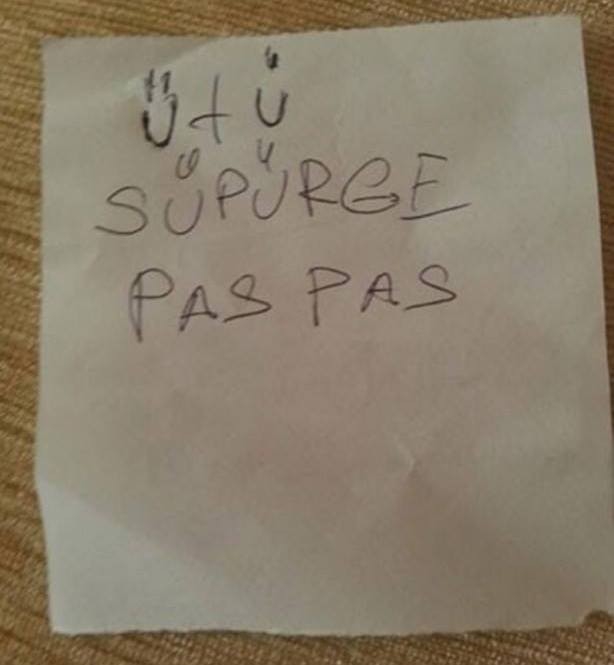 ÜtÜ
SÜPÜRGE
PAS PAS